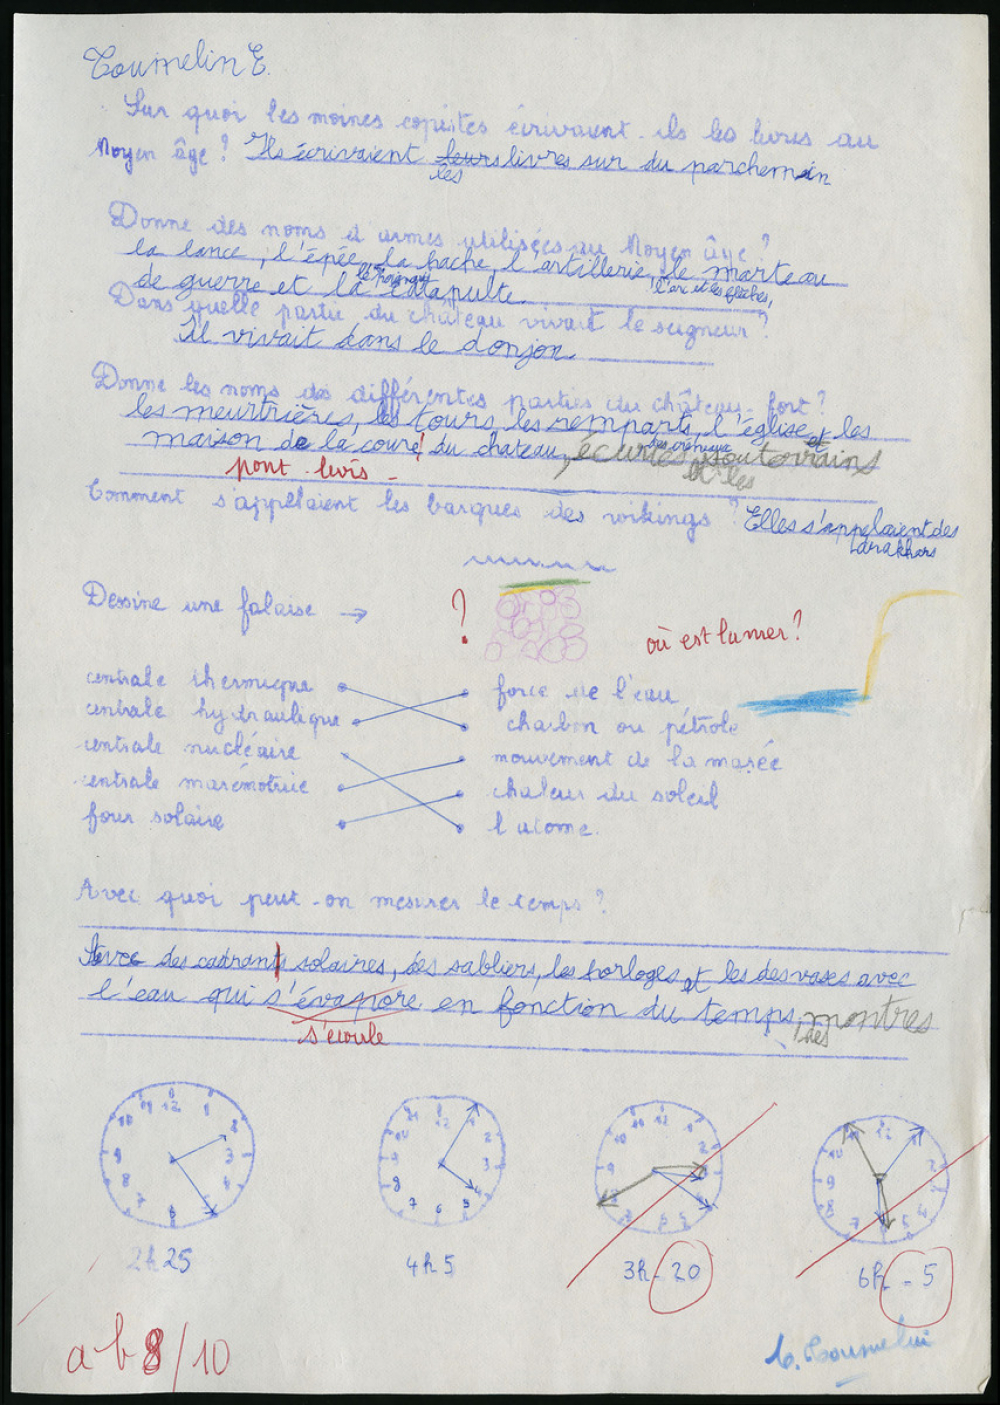 Coumelin E.
Sur quoi les moines copistes écrivaient-ils les livres au
Moyen âge ? Ils écrivaient leurs livres sur du parchemin
les
Donne des noms d'armes utilisées au Moyen âge ?
la lance, l'épée, la hache, l'artillerie, le marteau
de guerre et la catapulte. l'arc et les flèches,
Dans quelle partie du château vivait le seigneur ?
Il vivait dans le donjon.
Donne les noms des différentes parties du château-fort ?
les meurtrières, les tours, les remparts, l'église et les
maison de la cour du chateau, écuries souterrains
les créneaux
et les
pont-levis -
Comment s'appelaient les barques des vikings ? Elles s'appelaient des
drakkars
Dessine une falaise → ? où est la mer ?
centrale thermique force de l'eau
centrale hydraulique charbon ou pétrole
centrale nucléaire mouvement de la marée
centrale marémotrice chaleur du soleil
four solaire l'atome.
Avec quoi peut-on mesurer le temps ?
Avec des cadrant solaires, des sabliers, les horloges et les des vases avec
l'eau qui s'évapore en fonction du temps, montres
s'écoule des
11 12 1
10 2
9 3
8 4
7 6 5
11 12 1
10 2
9 3
8 4
7 6 5
11 12 1
10 2
9 3
8 4
7 6 5
11 12 1
10 2
9 3
8 4
7 6 5
2h25 4h5 3h-20 6h-5
ab 8/10
C. Coumelin